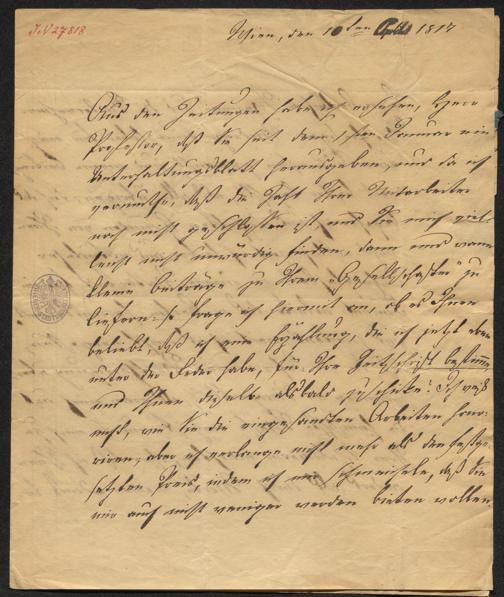 I.N 27818
Wien, den 10ten April 1817
Aus den Zeitungen habe ich ersehen, Herr
Professor, daß Sie seit dem 1sten Januar ein
Unterhaltungsblatt herausgeben, und da ich
vermuthe, daß die Zahl Ihrer Mitarbeiter
noch nicht geschlossen ist, und Sie mich viel-
leicht nicht unwürdig finden, dann und wann
kleine Beiträge zu Ihrem „Gesellschafter" zu
liefern: so frage ich hiermit an, ob es Ihnen
beliebt, daß ich eine Erzählung, die ich jetzt eben
unter der Feder habe, für Ihre Zeitschrift bestimme
und Ihnen dieselbe alsbald zuschicke? Ich weiß
nicht, wie Sie die eingesandten Arbeiten hono-
riren; aber ich verlange nicht mehr als den festge-
setzten Preis, indem ich mir schmeichele, daß Sie
mir auch nicht weniger werden bieten wollen.